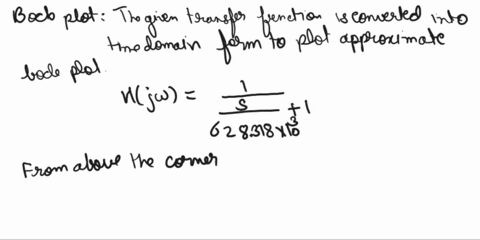 Bode plot: The given transfer function is converted into
timedomain form to plot approximate
bode plot.
H(jω) = 1
S + 1
628.318×10³
From above the corner